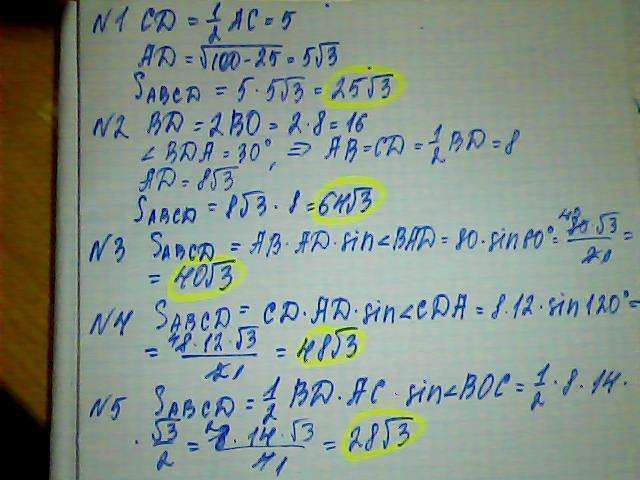 N1 CD = 1/2 AC = 5
AD = √(100-25) = 5√3
S_ABCD = 5 · 5√3 = 25√3
N2 BD = 2BO = 2 · 8 = 16
∠BDA = 30°, ⇒ AB = CD = 1/2 BD = 8
AD = 8√3
S_ABCD = 8√3 · 8 = 64√3
N3 S_ABCD = AB · AD · sin∠BAD = 80 · sin60° = 80·√3/2 =
= 40√3
N4 S_ABCD = CD · AD · sin∠CDA = 8 · 12 · sin120° =
= 8 · 12 · √3/2 = 48√3
N5 S_ABCD = 1/2 BD · AC · sin∠BOC = 1/2 · 8 · 14 ·
· √3/2 = 8 · 14 · √3/4 = 28√3